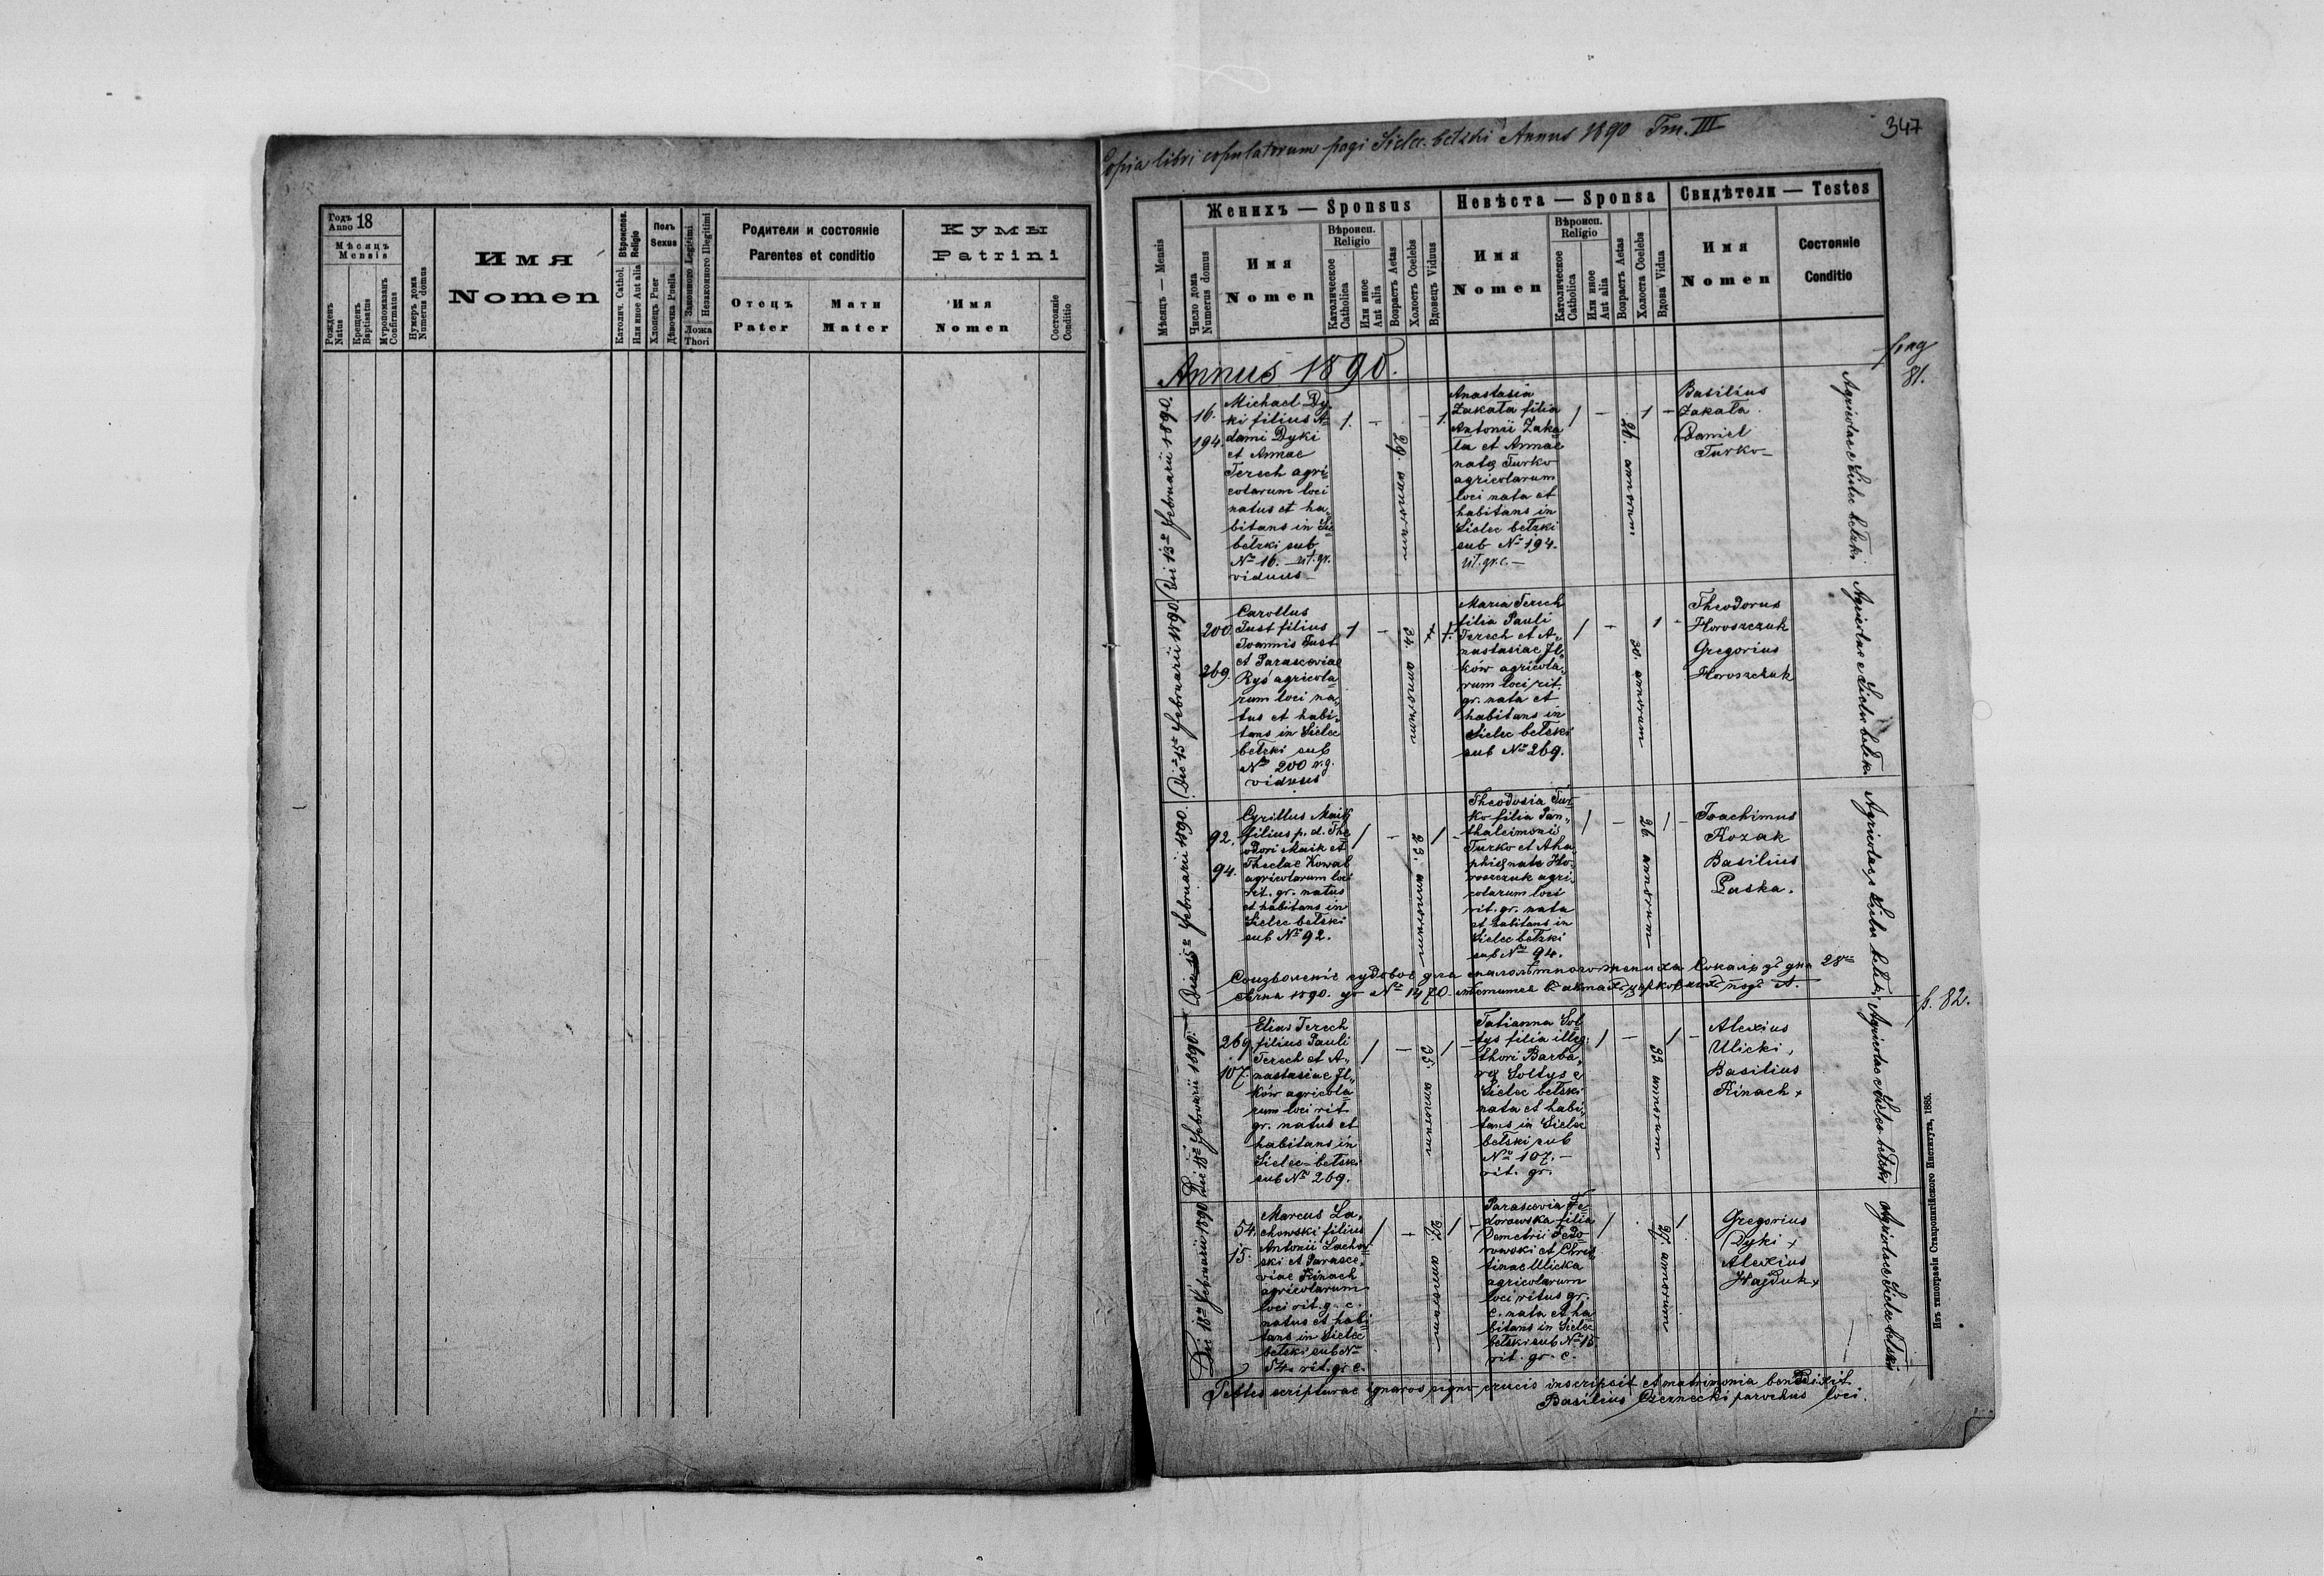 Годъ Anno 18
Мѣсяцъ
Mensis
Рожденъ
Natus
Крещенъ
Baptisatus
Мѵропомазанъ
Confirmatus
Нумеръ дома
Numerus domus
Имя
Nomen
Вѣроиспов.
Religio
Католич. Cathol.
Или иное Aut alia
Полъ
Sexus
Хлопецъ Puer
Дѣвочка Puella
Законного Legitimi
Незаконного Illegitimi
Ложа
Thori
Родители и состояніе
Parentes et conditio
Отецъ
Pater
Мати
Mater
Кумы
Patrini
Имя
Nomen
Состояніе
Conditio
Copia libri copulatorum pagi Sielec bełzki Annus 1890 Tm. III
347
Мѣсяцъ — Mensis
Женихъ — Sponsus
Число дома
Numerus domus
Имя
Nomen
Вѣроисп.
Religio
Католическое
Catholica
Или иное
Aut alia
Возрастъ Aetas
Холостъ Coelebs
Вдовецъ Viduus
Невѣста — Sponsa
Имя
Nomen
Вѣроисп.
Religio
Католическое
Catholica
Или иное
Aut alia
Возрастъ Aetas
Холоста Coelebs
Вдова Vidua
Свидѣтели — Testes
Имя
Nomen
Состояніе
Conditio
Annus 1890.
pag
81.
Die 13ª Februarii 1890.
16.
194.
Michael Dy-
ki filius A-
dami Dyki
et Annae
Terech agri-
colarum loci
natus et ha-
bitans in Sie
bełzki sub
Nº 16. rit. gr.
viduus
1. - 29. annorum - 1.
Anastasia
Zakała filia
Antonii Zaka
ła et Annae
natę Turko
agricolarum
loci nata et
habitans in
Sielec bełzki
sub Nº 194.
rit. gr. c. —
1 - 26. annorum 1 -
Basilius
Zakała
Daniel
Turko
Agricolae Sielec bełzki
Die 15ª Februarii 1890.
200.
269.
Carollus
Just filius
Joannis Just
et Parasceviae
Ryś agricola-
rum loci na-
tus et habi-
tans in Sielec
bełzki sub
Nº 200 r. g.
viduus
1 - 34. annorum 1.
Maria Terech
filia Pauli
Terech et A-
nastasiae Il-
ków agricola-
rum loci rit.
gr. nata et
habitans in
Sielec bełski
sub Nº 269.
1 - 30. annorum 1 -
Theodorus
Horoszczuk
Gregorius
Horoszczuk
Agricolae Sielec bełzki
Die 15ª Februarii 1890.
92.
94.
Cyrillus Maik
filius p. d. The
odori Maik et
Theclae Kowal
agricolarum loci
rit. gr. natus
et habitans in
Sielec bełski
sub Nº 92.
1 - 23. annorum 1 -
Theodosia Tur-
ko filia Pan-
thaleimonis
Turko et Aha-
phię natę Ho-
roszczuk agri-
colarum loci
rit. gr. nata
et habitans in
Sielec bełzki
sub Nº 94.
1 - 26. annorum 1 -
Joachimus
Kozak
Basilius
Paska.
Agricolae Sielec bełzki
1890. Nº 1470.
p. 82.
Die 18ª Februarii 1890.
269.
107.
Elias Terech
filius Pauli
Terech et A-
nastasiae Il-
ków agricola-
rum loci rit
gr. natus et
habitans in
Sielec bełski
sub Nº 269.
1 - 35. annorum 1 -
Tatianna Soł
tys filia illeg.
thori Barba-
rę Sołtys e
Sielec bełski
nata et habi-
tans in Sielec
bełski sub
Nº 107. —
rit. gr.
1 - 33. annorum 1 -
Alexius
Ulicki,
Basilius
Kinach +
Agricolae Sielec bełzki
Die 18ª Februarii 1890
54.
15.
Marcus La-
chowski filius
Antonii Lachow-
ski et Parasce-
viae Kinach
agricolarum
loci rit. g. c.
natus et habi-
tans in Sielec
bełski sub Nº
54. rit. gr. c.
1 - 27. annorum 1 -
Parascevia Fe-
dorowska filia
Demetrii Fedo-
rowski et Chris
tinae Ulicka
agricolarum
loci ritus gr.
c. nata et ha
bitans in Sielec
bełski sub Nº 15
rit. gr. c.
1 27. annorum 1
Gregorius
Dyki +
Alexius
Hajduk +
Agricolae Sielec bełski
Testes scripturae ignaros signo crucis inscripsit et matrimonia benedixit
Basilius Czernecki parochus loci.
Изъ типографіи Ставропигійского Института, 1885.